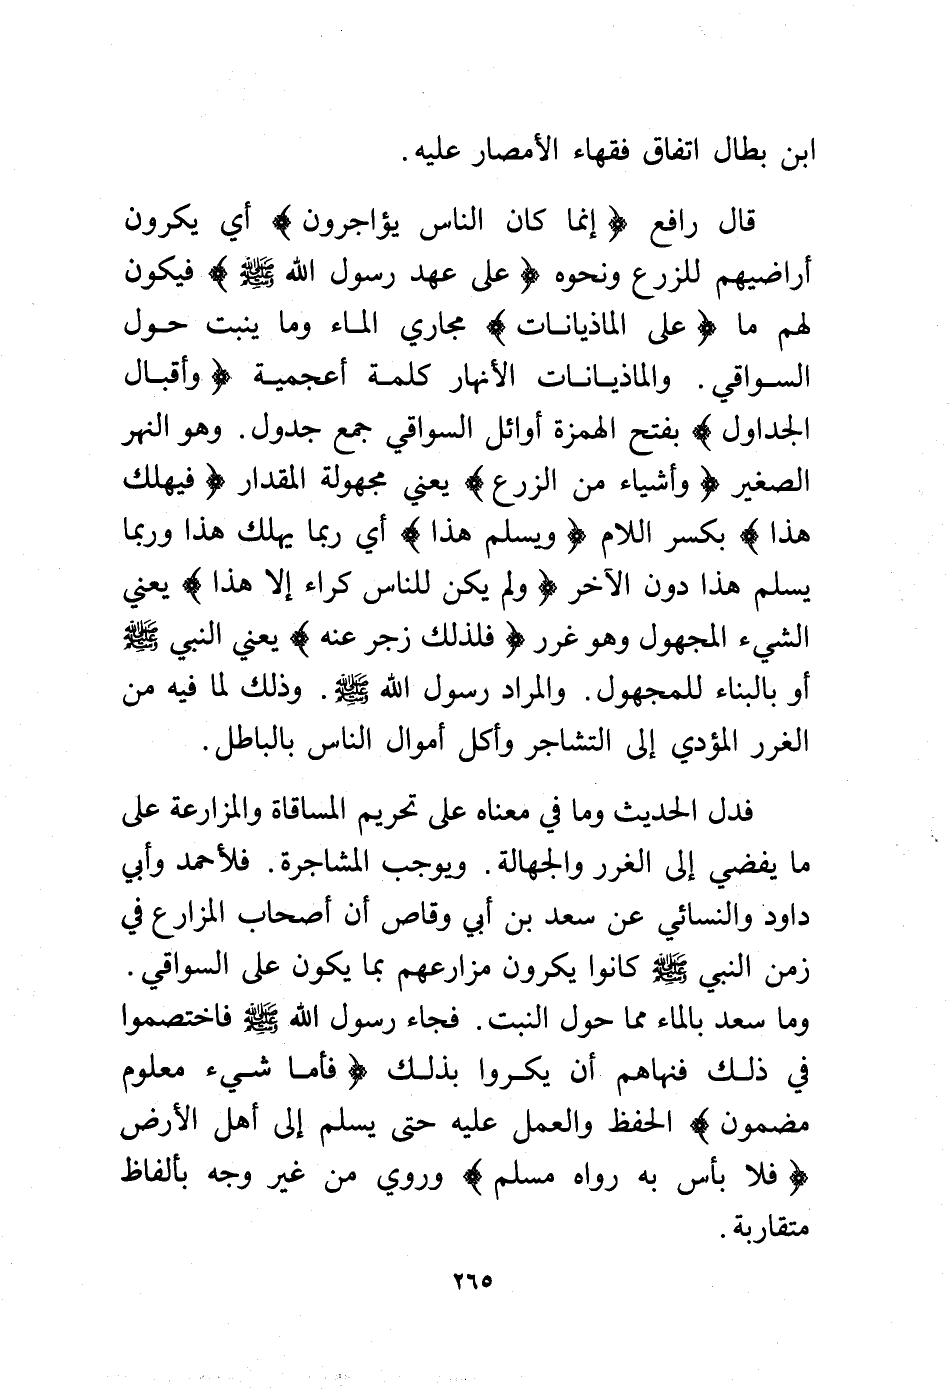 ابن بطال اتفاق فقهاء الأمصار عليه .
قال رافع ﴿ إنما كان الناس يؤاجرون ﴾ أي يكرون
أراضيهم للزرع ونحوه ﴿ على عهد رسول الله ﷺ ﴾ فيكون
لهم ما ﴿ على الماذيانات ﴾ مجاري الماء وما ينبت حول
السواقي . والماذيانات الأنهار كلمة أعجمية ﴿ وأقبال
الجداول ﴾ بفتح الهمزة أوائل السواقي جمع جدول . وهو النهر
الصغير ﴿ وأشياء من الزرع ﴾ يعني مجهولة المقدار ﴿ فيهلك
هذا ﴾ بكسر اللام ﴿ ويسلم هذا ﴾ أي ربما يهلك هذا وربما
يسلم هذا دون الآخر ﴿ ولم يكن للناس كراء إلا هذا ﴾ يعني
الشيء المجهول وهو غرر ﴿ فلذلك زجر عنه ﴾ يعني النبي ﷺ
أو بالبناء للمجهول . والمراد رسول الله ﷺ . وذلك لما فيه من
الغرر المؤدي إلى التشاجر وأكل أموال الناس بالباطل .
فدل الحديث وما في معناه على تحريم المساقاة والمزارعة على
ما يفضي إلى الغرر والجهالة . ويوجب المشاجرة . فلأحمد وأبي
داود والنسائي عن سعد بن أبي وقاص أن أصحاب المزارع في
زمن النبي ﷺ كانوا يكرون مزارعهم بما يكون على السواقي .
وما سعد بالماء مما حول النبت . فجاء رسول الله ﷺ فاختصموا
في ذلك فنهاهم أن يكروا بذلك ﴿ فأما شيء معلوم
مضمون ﴾ الحفظ والعمل عليه حتى يسلم إلى أهل الأرض
﴿ فلا بأس به رواه مسلم ﴾ وروي من غير وجه بألفاظ
متقاربة .
٢٦٥